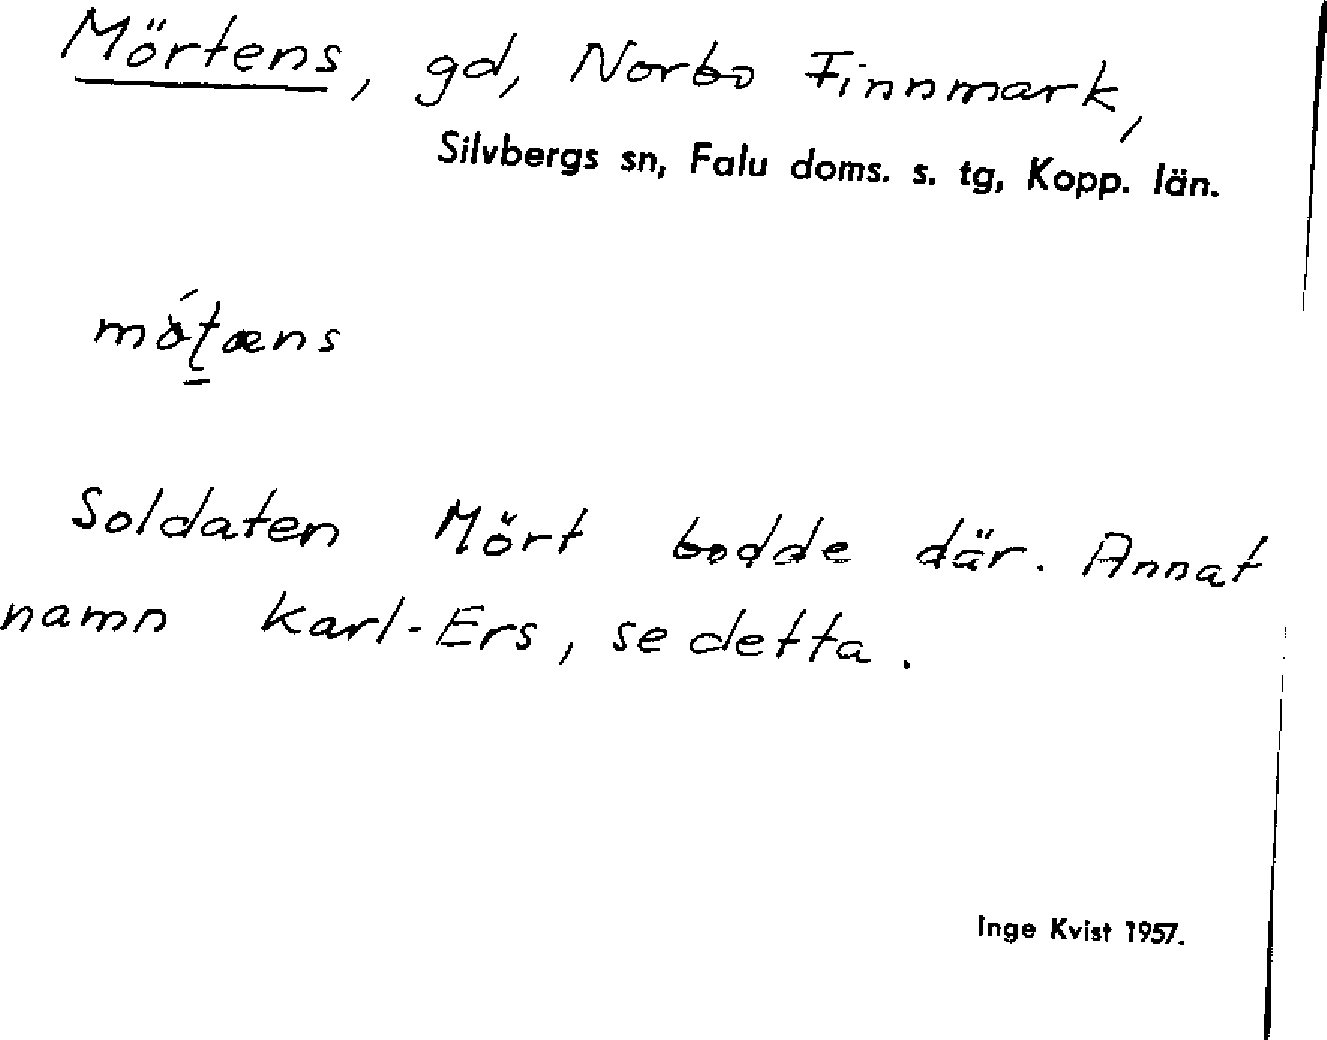 Mörtens, gd, Norbo Finnmark,
Silvbergs sn, Falu doms. s. tg, Kopp. län.
Soldaten Mört bodde där. Annat
namn Karl-Ers, se detta.
Inge Kvist 1957.